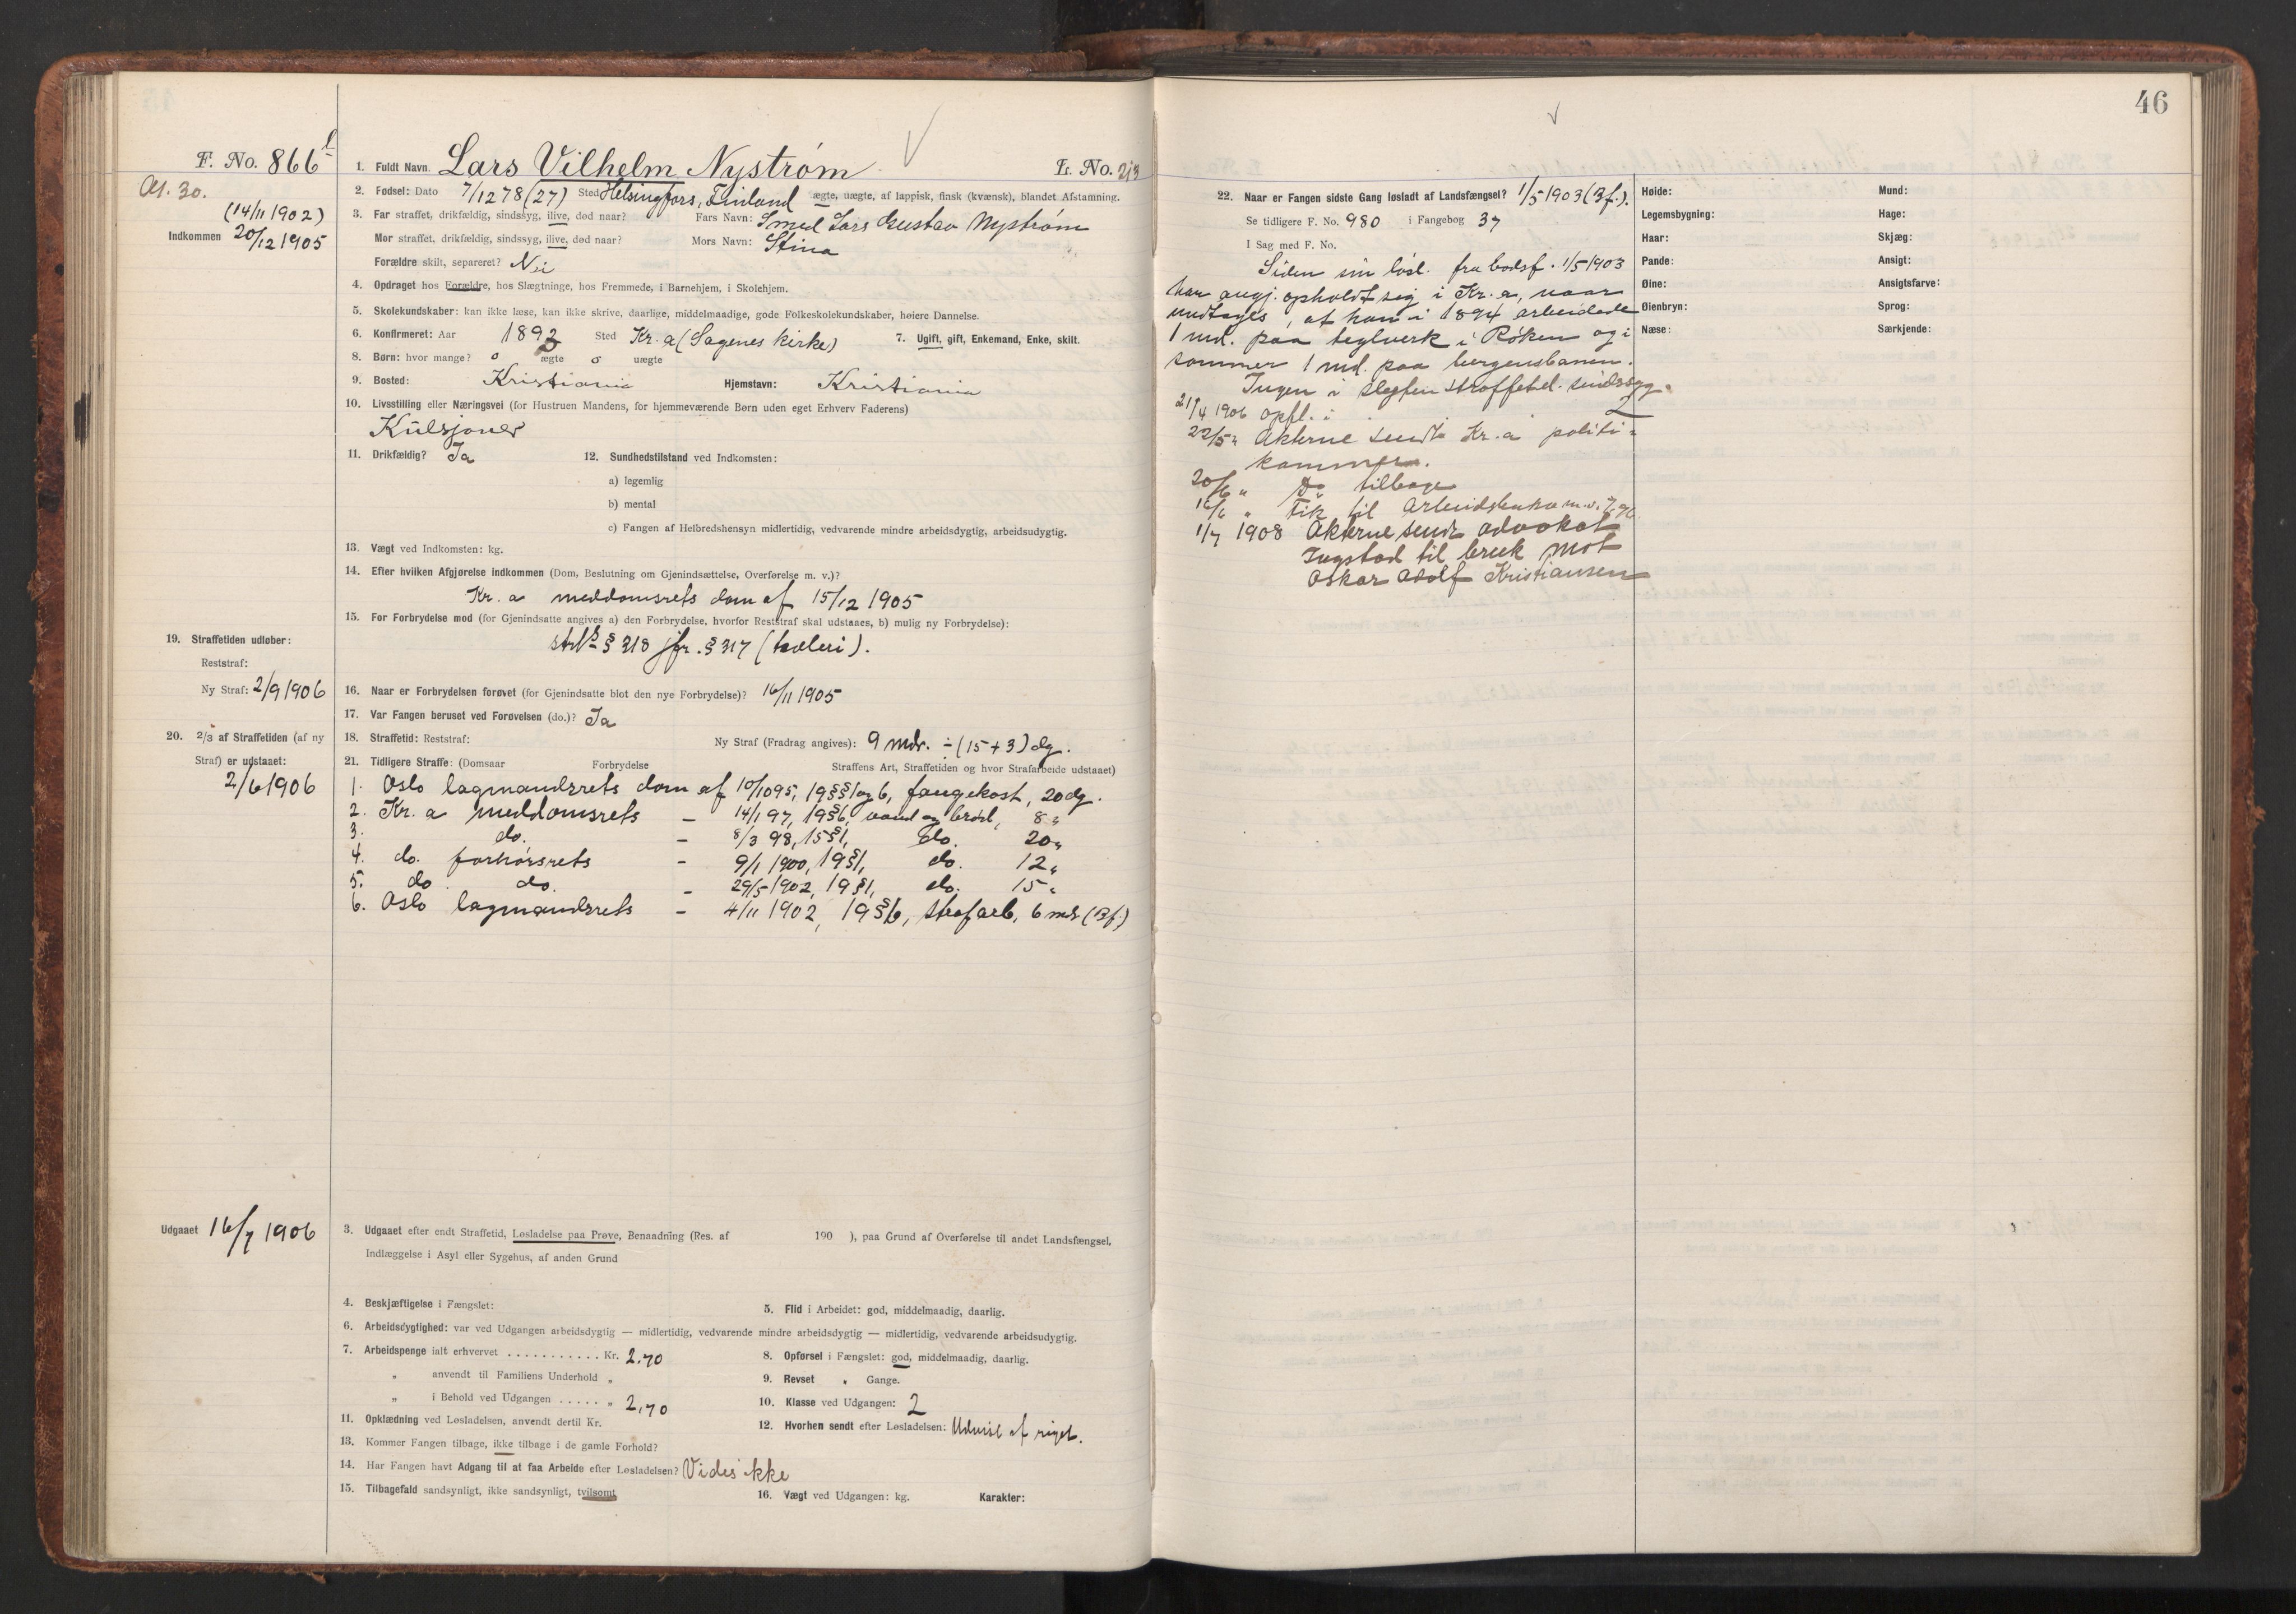 F. No. 866 b
Al. 30.
(14/11 1902)
Indkommen 20/12 1905
1. Fuldt Navn Lars Vilhelm Nystrøm L. No. 213
2. Fødsel: Dato 7/12 78 (27) Sted Helsingfors, Finland ægte, uægte, af lappisk, finsk (kvænsk), blandet Afstamning.
3. Far straffet, drikfældig, sindssyg, ilive, død naar? Fars Navn: Smed Lars Gustav Nystrøm
Mor straffet, drikfældig, sindssyg, ilive, død naar? Mors Navn: Stina
Forældre skilt, separeret? Nei
4. Opdraget hos Forældre, hos Slægtninge, hos Fremmede, i Barnehjem, i Skolehjem.
5. Skolekundskaber: kan ikke læse, kan ikke skrive, daarlige, middelmaadige, gode Folkeskolekundskaber, høiere Dannelse.
6. Konfirmeret: Aar 1893 Sted Kr.a (Sagenes kirke) 7. Ugift, gift, Enkemand, Enke, skilt.
8. Børn: hvor mange? 0 ægte 0 uægte
9. Bosted: Kristiania Hjemstavn: Kristiania
10. Livsstilling eller Næringsvei (for Hustruen Mandens, for hjemmeværende Børn uden eget Erhverv Faderens)
Kulsjouer
11. Drikfældig? Ja 12. Sundhedstilstand ved Indkomsten:
a) legemlig
b) mental
c) Fangen af Helbredshensyn midlertidig, vedvarende mindre arbeidsdygtig, arbeidsudygtig.
13. Vægt ved Indkomsten: kg.
14. Efter hvilken Afgjørelse indkommen (Dom, Beslutning om Gjenindsættelse, Overførelse m. v.)?
Kr.a meddomsrets dom af 15/12 1905
15. For Forbrydelse mod (for Gjenindsatte angives a) den Forbrydelse, hvorfor Reststraf skal udstaaes, b) mulig ny Forbrydelse):
§ 318 jfr. § 317 (heleri).
19. Straffetiden udløber:
Reststraf:
Ny Straf: 2/9 1906
16. Naar er Forbrydelsen forøvet (for Gjenindsatte blot den nye Forbrydelse)? 16/11 1905
17. Var Fangen beruset ved Forøvelsen (do.)? Ja
20. 2/3 af Straffetiden (af ny
Straf) er udstaaet:
2/6 1906
18. Straffetid: Reststraf: Ny Straf (Fradrag angives): 9 mdr. ÷ (15 + 3) dg.
21. Tidligere Straffe: (Domsaar Forbrydelse Straffens Art, Straffetiden og hvor Strafarbeide udstaaet)
1. Oslo lagmandsrets dom af 10/10 95, 19 §§ 1 og 6, fangekost, 20 dg.
2. Kr.a meddomsrets — 14/1 97, 19 § 6, vand og brød, 8 "
3. do. — 8/3 98, 15 § 1, do. 20 "
4. do. forhørsrets — 9/1 1900, 19 § 1, do. 12 "
5. do do. — 29/5 1902, 19 § 1, do. 15 "
6. Oslo lagmandsrets — 4/11 1902, 19 § 6, strafarb. 6 mdr (Bf.)
Udgaaet 16/7 1906
3. Udgaaet efter endt Straffetid, Løsladelse paa Prøve, Benaadning (Res. af 190 ), paa Grund af Overførelse til andet Landsfængsel,
Indlæggelse i Asyl eller Sygehus, af anden Grund
4. Beskjæftigelse i Fængslet: 5. Flid i Arbeidet: god, middelmaadig, daarlig.
6. Arbeidsdygtighed: var ved Udgangen arbeidsdygtig — midlertidig, vedvarende mindre arbeidsdygtig — midlertidig, vedvarende arbeidsudygtig.
7. Arbeidspenge ialt erhvervet ........... Kr. 2.70 8. Opførsel i Fængslet: god, middelmaadig, daarlig.
" anvendt til Familiens Underhold " 9. Revset " Gange.
" i Behold ved Udgangen ..... " 2,70 10. Klasse ved Udgangen: 2
11. Opklædning ved Løsladelsen, anvendt dertil Kr. 12. Hvorhen sendt efter Løsladelsen: Udvist af riget.
13. Kommer Fangen tilbage, ikke tilbage i de gamle Forhold?
14. Har Fangen havt Adgang til at faa Arbeide efter Løsladelsen? Vides ikke
15. Tilbagefald sandsynligt, ikke sandsynligt, tvilsomt 16. Vægt ved Udgangen: kg. Karakter:
46
22. Naar er Fangen sidste Gang løsladt af Landsfængsel? 1/5 1903 (Bf.).
Se tidligere F. No. 980 i Fangebog 37
I Sag med F. No.
Siden sin løsl. fra bodsf. 1/5 1903
har angj. opholdt sig i Kr.a, naar
undtages, at han i 1894 arbeidede
1 md. paa teglverk i Røken og i
sommer 1 md. paa bergensbanen.
Ingen i slegten straffet el. sindssyg.
21/4 1906 opfl. i 2
22/5 " Akterne sendt Kr.a politi-
kammer.
20/6 " Do tilbage
16/6 " Fik til
1/7 1908 Akterne sendt advokat
Ingstad til bruk mot
Oskar Adolf Kristiansen
Høide:
Legemsbygning:
Haar:
Pande:
Øine:
Øienbryn:
Næse:
Mund:
Hage:
Skjæg:
Ansigt:
Ansigtsfarve:
Sprog:
Særkjende: